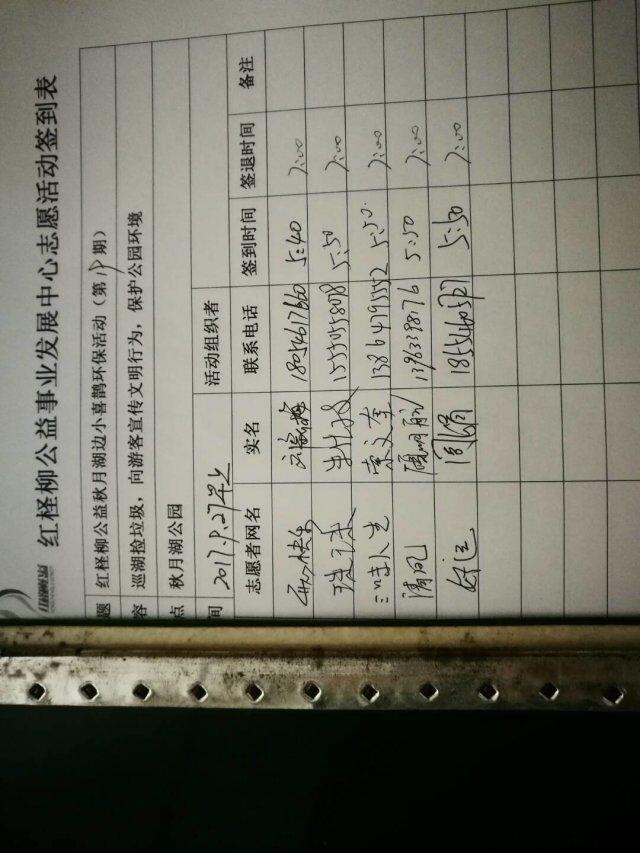 红柽柳公益事业发展中心志愿活动签到表
题 红柽柳公益秋月湖边小喜鹊环保活动（第19期）
容 巡湖捡垃圾，向游客宣传文明行为，保护公园环境
点 秋月湖公园
间 2017.9.27早上 活动组织者
志愿者网名 实名 联系电话 签到时间 签退时间 备注
快乐 18054617660 5:40 7:00
5:50 7:00
三味人生 13864795552 5:50 7:00
清风 13963398176 5:50 7:00
好运 闫娟 5:50 7:00